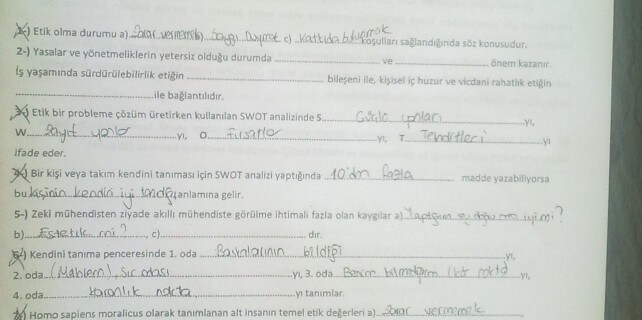 1-) Etik olma durumu a) Zarar vermemek b) Saygı Duymak c) Katkıda bulunmak koşulları sağlandığında söz konusudur.
2-) Yasalar ve yönetmeliklerin yetersiz olduğu durumda ........ ve ........ önem kazanır.
İş yaşamında sürdürülebilirlik etiğin ........ bileşeni ile, kişisel iç huzur ve vicdani rahatlık etiğin
........ ile bağlantılıdır.
3-) Etik bir probleme çözüm üretirken kullanılan SWOT analizinde S........ Güçlü yönleri ........yı,
W........ Zayıf yönler ........yı, O........ Fırsatlar ........yı, T........ Tehditleri ........yı
ifade eder.
4-) Bir kişi veya takım kendini tanıması için SWOT analizi yaptığında 10'dan fazla madde yazabiliyorsa
bu kişinin kendini iyi tanıdığı anlamına gelir.
5-) Zeki mühendisten ziyade akıllı mühendiste görülme ihtimali fazla olan kaygılar a) Yaptığım şey doğru mu iyi mi?
b) Estetik mi?, c)........ dır.
6-) Kendini tanıma penceresinde 1. oda ........ Başkalarının bildiği ........yı,
2. oda (Mahrem), Sır odası ........yı, 3. oda Benim bilmediğim kör nokta ........yı,
4. oda........ Karanlık nokta ........yı tanımlar.
Homo sapiens moralicus olarak tanımlanan alt insanın temel etik değerleri a) Zarar vermemek